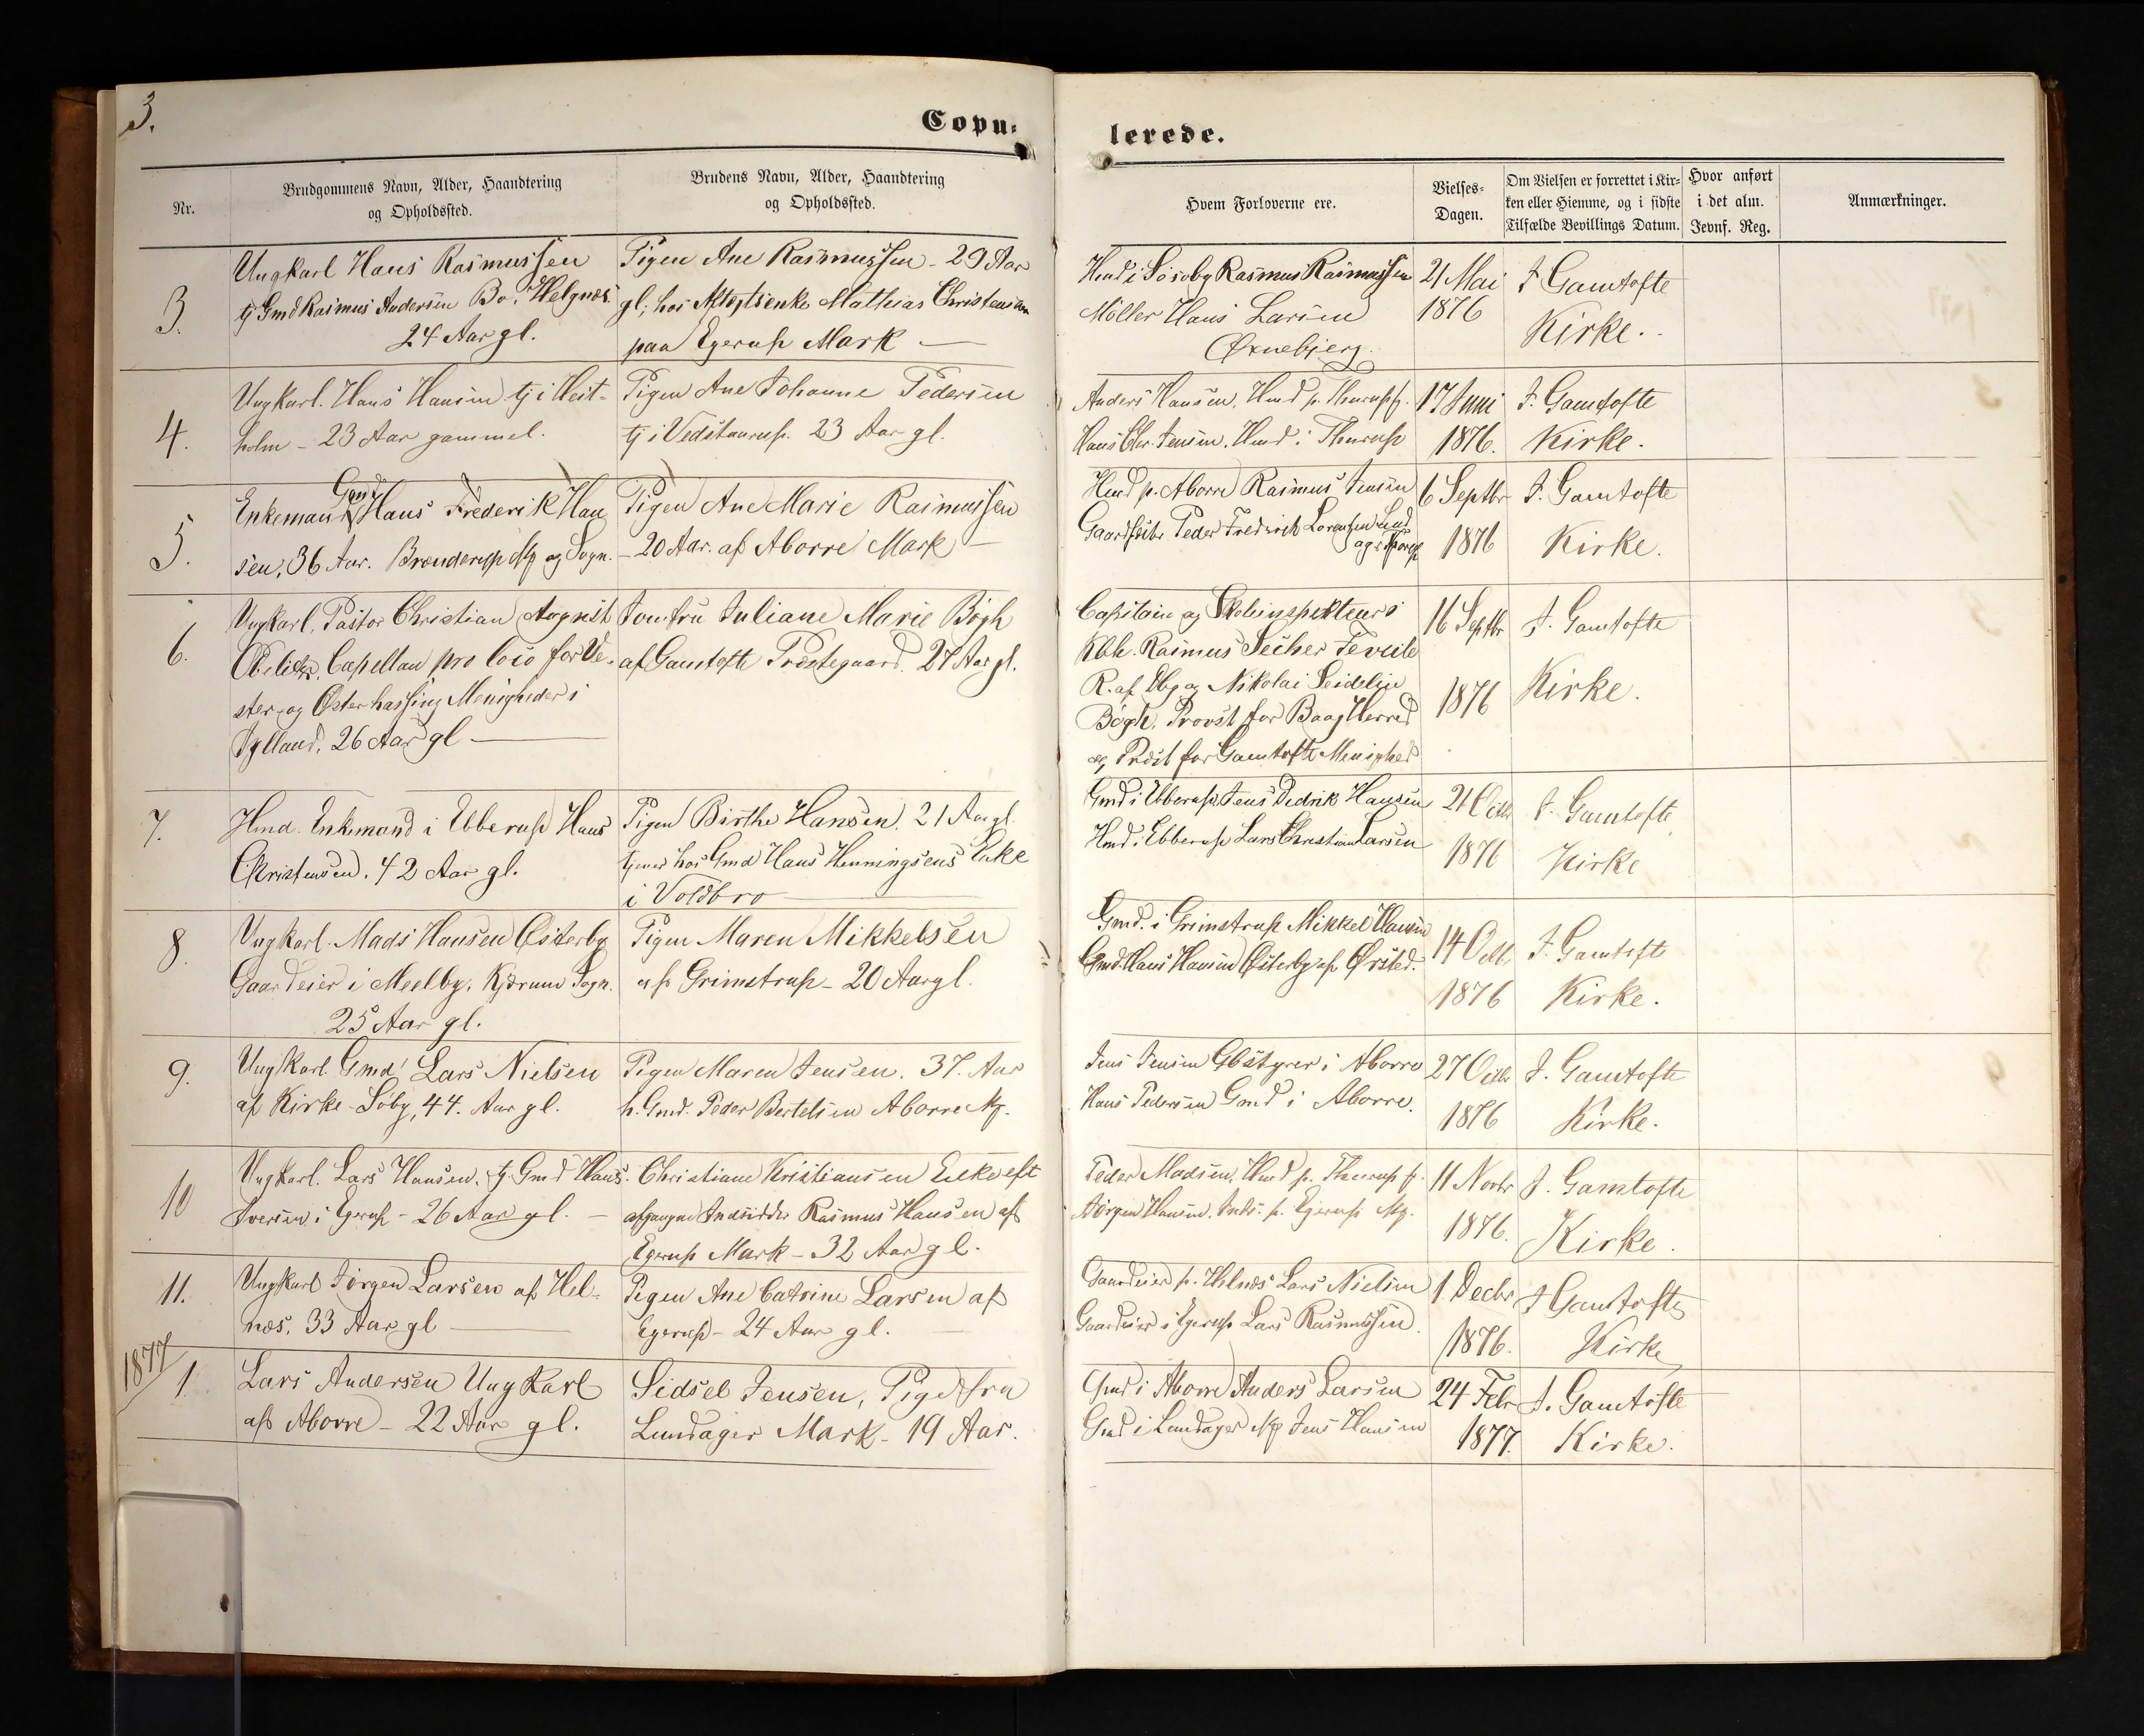 3.
Copu=
lerede.
Nr.
Brudgommens Navn, Alder, Haandtering
og Opholdssted.
Brudens Navn, Alder, Haandtering
og Opholdssted.
Hvem Forloverne ere.
Vielses-
Dagen.
Om Vielsen er forrettet i Kir-
ken eller Hiemme, og i sidste
Tilfælde Bevillings Datum.
Hvor anført
i det alm.
Jevnf. Reg.
Anmærkninger.
3.
Ungkarl Hans Rasmussen
tj Gmd Rasmus Andersen Bo. Helgnæs.
24 Aar gl.
Pigen Ane Rasmussen - 29 Aar
gl; hos Aftægtsenke Mathias Christensen
paa Egerup Mark
Hmd i Rasmus Rasmussen
Möller Hans Larsen
Øxnebjerg
21 Mai
1876
I Gamtofte
Kirke.
4.
Ungkarl. Hans Hansen tj i Hest-
holm - 23 Aar gammel.
Pigen Ane Johanne Pedersen
tj i Vedstaarup. 23 Aar gl.
Anders Hansen, Hmd p. Thurup
Hans Chr. Jensen. Hmd i Thurup
17 Juni
1876.
I. Gamtofte
Kirke.
5.
Enkemand Gmd Hans Frederik Han
sen, 36 Aar. Brænderup Mk og Sogn.
Pigen Ane Marie Rasmussen
- 20 Aar. af Aborre Mark
Hmd p. Aborre Rasmus Jensen
Peder Fredrich Lorentsen
6 Septbr
1876
I. Gamtofte
Kirke.
6.
Ungkarl, Pastor Christian August
Obelitz, Capellan pro loco for Ve-
ster og Øster hassing Menigheder i
Jylland, 26 Aar gl
Jomfru Juliane Marie Bögh
af Gamtofte Præstegaard. 27 Aar gl.
Capitain og Skoleinspekteur i
Kbh. Rasmus Secher
R. af Dbg og Nikolai Seidelin
Bögh. Provst for Baag Herred
og Præst for Gamtofte Menighed
16 Septbr
1876
I. Gamtofte
Kirke.
7.
Hmd. Enkemand i Ebberup Hans
Christensen. 42 Aar gl.
Pigen Birthe Hansen. 21 Aar gl.
tjener hos Gmd Hans Henningsens Enke
i Voldbro
Gmd i Ebberup Jens Dedrik Hansen
Hmd i Ebberup Lars Christian Larsen
21 Octbr
1876
I. Gamtofte
Kirke
8.
Ungkarl. Mads Hansen Østerby
Gaardeier i Meelby. Kjærum Sogn.
25 Aar gl.
Pigen Maren Mikkelsen
af Grimstrup - 20 Aar gl.
Gmd. i Grimstrup Mikkel Hansen
Gmd. Hans Hansen Østerby af Ørsted.
14 Octb.
1876
I. Gamtofte
Kirke.
9.
Ungkarl. Gmd Lars Nielsen
af Kirke-Söby, 44. Aar gl.
Pigen Maren Jensen. 37. Aar
h. Gmd. Peder Bertelsen Aborre Mk.
Jens Jensen Gbstyrer i Aborre
Hans Pedersen Gmd i Aborre.
27 Octbr
1876
I. Gamtofte
Kirke.
10
Ungkarl. Lars Hansen. tj. Gmd Hans
Iversen i Egerup - 26 Aar gl.
Christiane Kristiansen Enke eft
afgangne Indsidder Rasmus Hansen af
Egerup Mark - 32 Aar gl.
Peder Madsen, Hmd p. Thurup
Jörgen Hansen. Inds. p. Egerup Mk.
11 Novbr
1876.
I. Gamtofte
Kirke.
11.
Ungkarl Jörgen Larsen af Hel-
næs. 33 Aar gl
Pigen Ane Catrine Larsen af
Egerup - 24 Aar gl.
Gaardeier p. Helnæs Lars Nielsen
Gaardeier i Egerup Lars Rasmussen
1 Decbr
1876.
I Gamtofte
Kirke
1877
1.
Lars Andersen Ungkarl
af Aborre - 22 Aar gl.
Sidsel Jensen, Pige fra
Lundager Mark - 19 Aar.
Gmd i Aborre Anders Larsen
Gmd i Lundager Mk Jens Hansen
24 Febr
1877.
I. Gamtofte
Kirke.